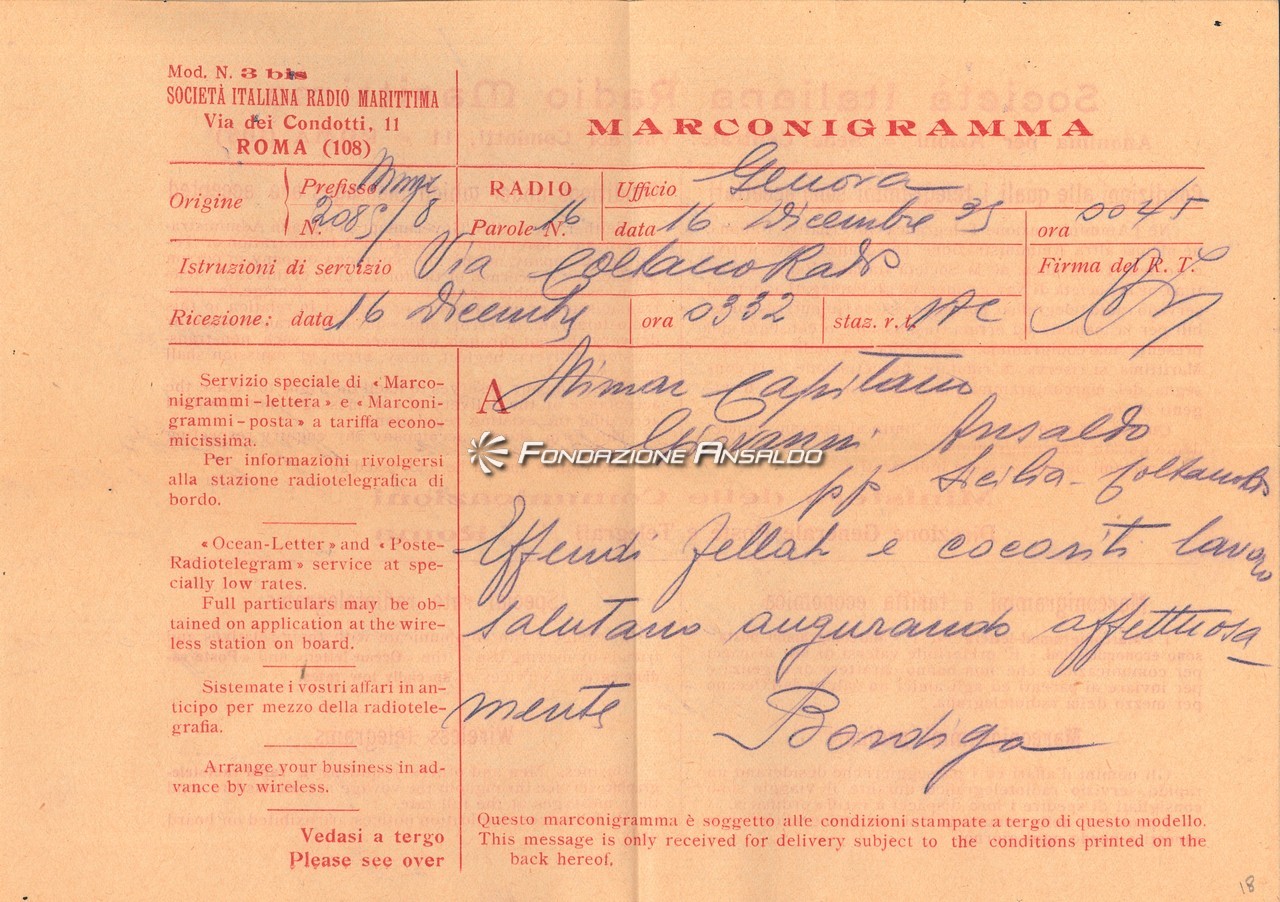 Mod. N. 3 bis
SOCIETÀ ITALIANA RADIO MARITTIMA
Via dei Condotti, 11
ROMA (108)
MARCONIGRAMMA
Origine
Prefisso
N. 2085/8
RADIO
Parole N. 16
Ufficio Genova
data 16 Dicembre 35
ora 0045
Istruzioni di servizio Via Coltano Radio
Firma del R. T.
Ricezione: data 16 Dicembre
ora 0332
staz. r. t.
Servizio speciale di « Marco-
nigrammi-lettera » e « Marconi-
grammi-posta » a tariffa econo-
micissima.
Per informazioni rivolgersi
alla stazione radiotelegrafica di
bordo.
« Ocean-Letter » and « Poste-
Radiotelegram » service at spe-
cially low rates.
Full particulars may be ob-
tained on application at the wire-
less station on board.
Sistemate i vostri affari in an-
ticipo per mezzo della radiotele-
grafia.
Arrange your business in ad-
vance by wireless.
Vedasi a tergo
Please see over
A Capitano
Giovanni Ansaldo
FONDAZIONE ANSALDO
pp Sicilia - Coltano
Effendi Fellah e lavoro
salutano augurando affettuosa-
mente Bordiga
Questo marconigramma è soggetto alle condizioni stampate a tergo di questo modello.
This message is only received for delivery subject to the conditions printed on the
back hereof.
18